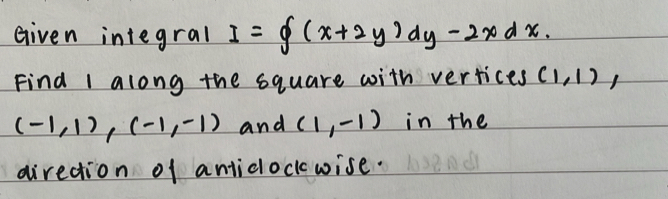 Given integral I = ∮ (x+2y)dy - 2x dx.
Find I along the square with vertices (1,1),
(-1,1), (-1,-1) and (1,-1) in the
direction of anticlockwise.